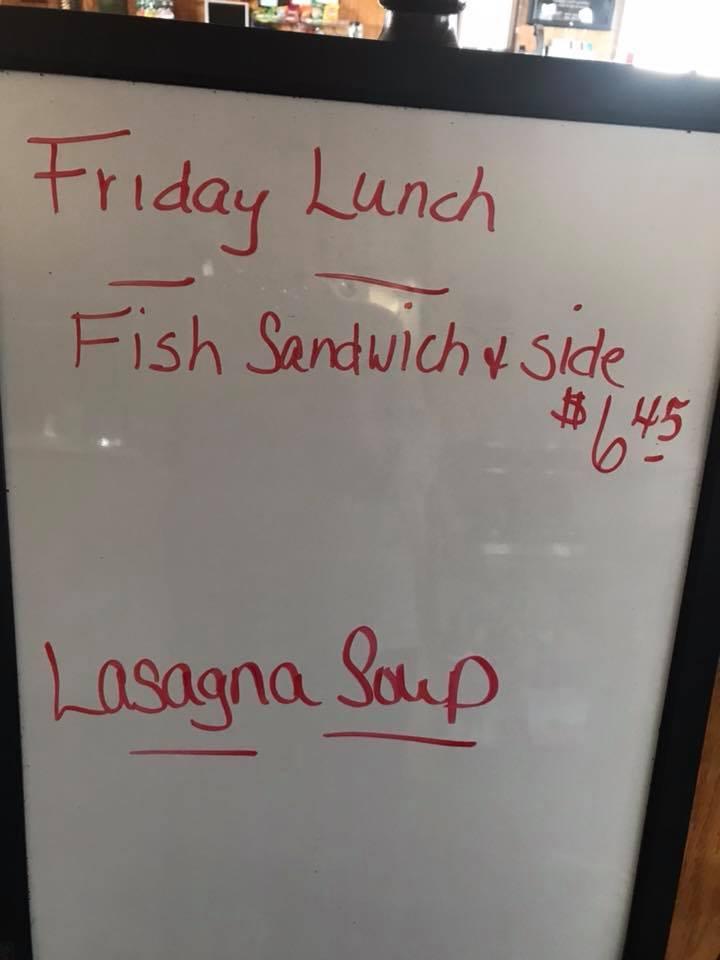 Friday Lunch
Fish Sandwich & Side
$6.45
Lasagna Soup